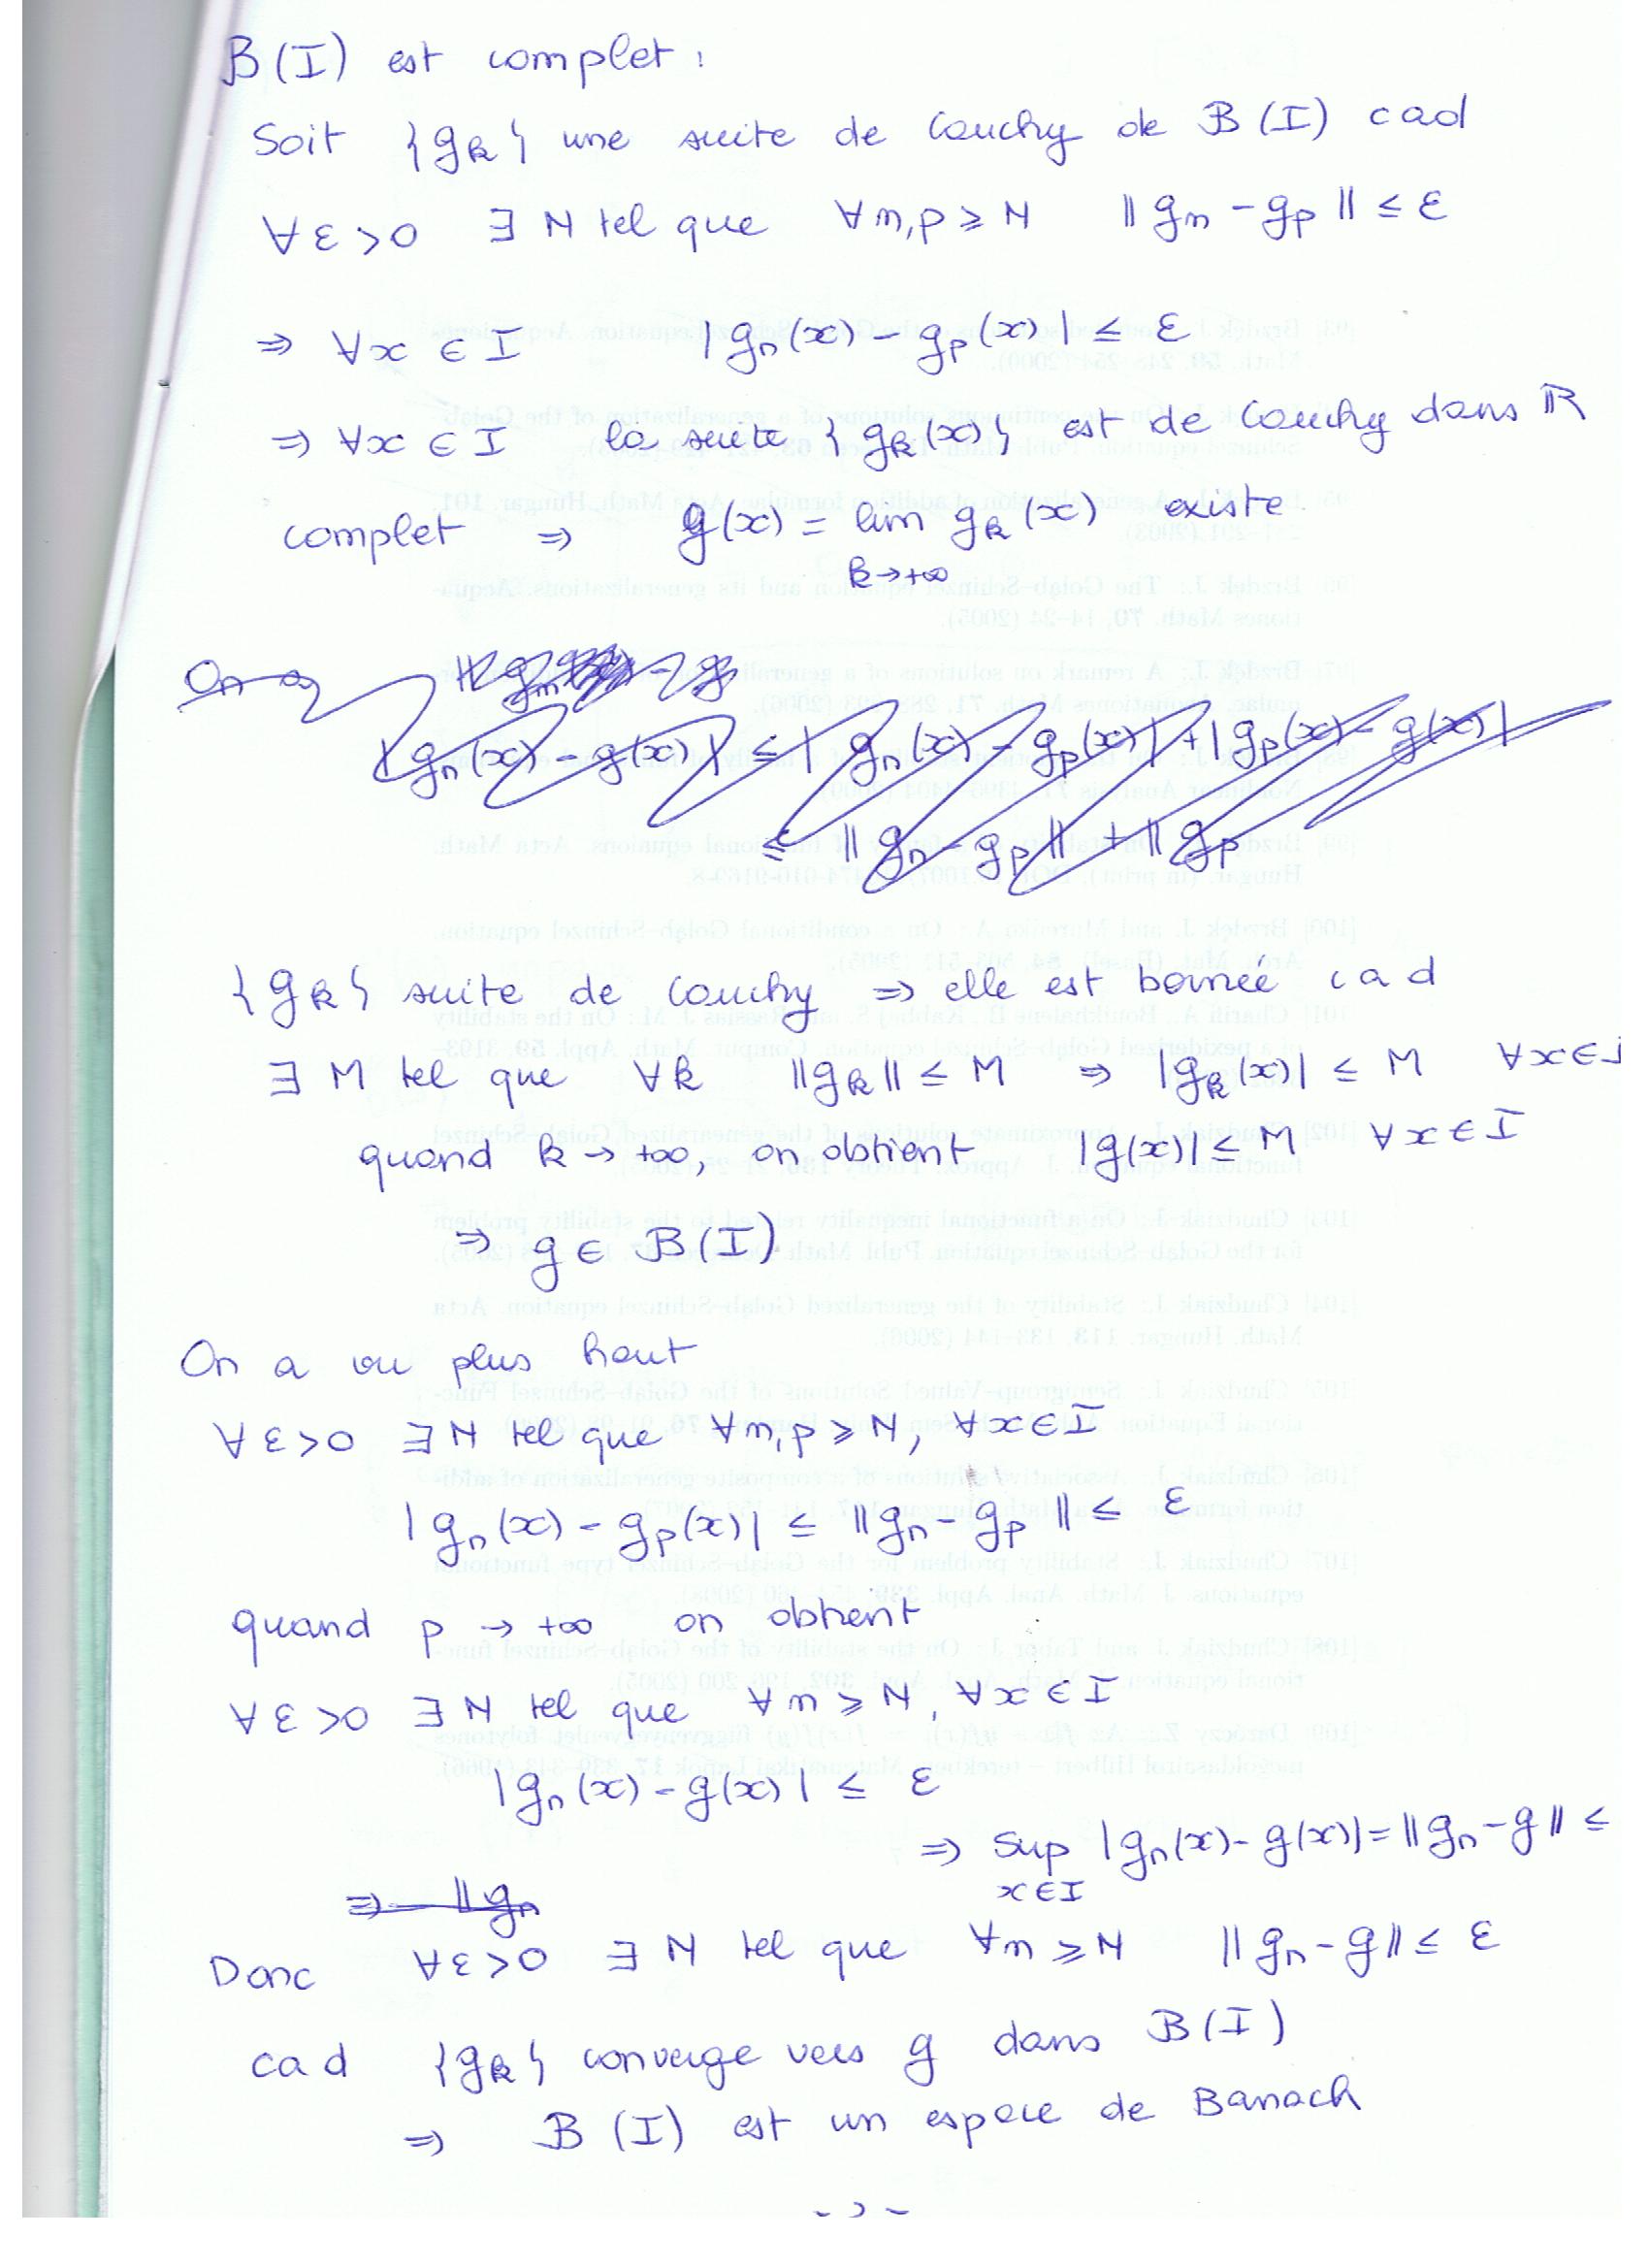 B(I) est complet :
Soit {g_k} une suite de Cauchy de B(I) cad
∀ε>0 ∃ N tel que ∀n,p ≥ N ‖g_n - g_p‖ ≤ ε
⇒ ∀x ∈ I |g_n(x) - g_p(x)| ≤ ε
⇒ ∀x ∈ I la suite {g_k(x)} est de Cauchy dans ℝ
complet ⇒ g(x) = lim g_k(x) existe
k→+∞
On a
|g_n(x) - g(x)| ≤ |g_n(x) - g_p(x)| + |g_p(x) - g(x)|
≤ ‖g_n - g_p‖ + ‖g_p
{g_k} suite de Cauchy ⇒ elle est bornée cad
∃ M tel que ∀k ‖g_k‖ ≤ M ⇒ |g_k(x)| ≤ M ∀x∈I
quand k → +∞, on obtient |g(x)| ≤ M ∀x∈I
⇒ g ∈ B(I)
On a vu plus haut
∀ε>0 ∃N tel que ∀n,p ≥ N, ∀x∈I
|g_n(x) - g_p(x)| ≤ ‖g_n - g_p‖ ≤ ε
quand p → +∞ on obtient
∀ε>0 ∃N tel que ∀n ≥ N, ∀x∈I
|g_n(x) - g(x)| ≤ ε
⇒ sup |g_n(x) - g(x)| = ‖g_n - g‖ ≤
x∈I
⇒ ‖g_n
Donc ∀ε>0 ∃ N tel que ∀n ≥ N ‖g_n - g‖ ≤ ε
cad {g_k} converge vers g dans B(I)
⇒ B(I) est un espace de Banach